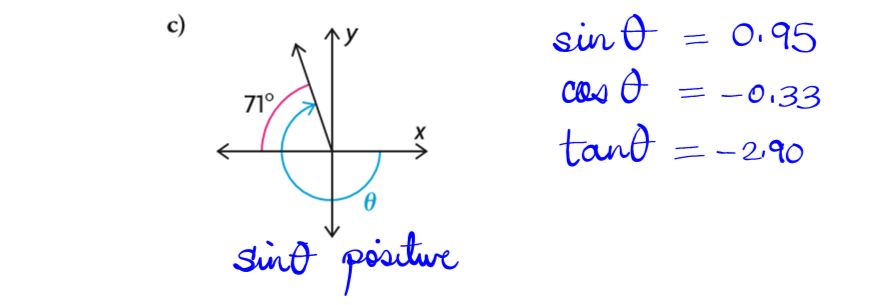 c)
y
71°
x
θ
sinθ positive
sin θ = 0.95
cos θ = -0.33
tanθ = -2.90